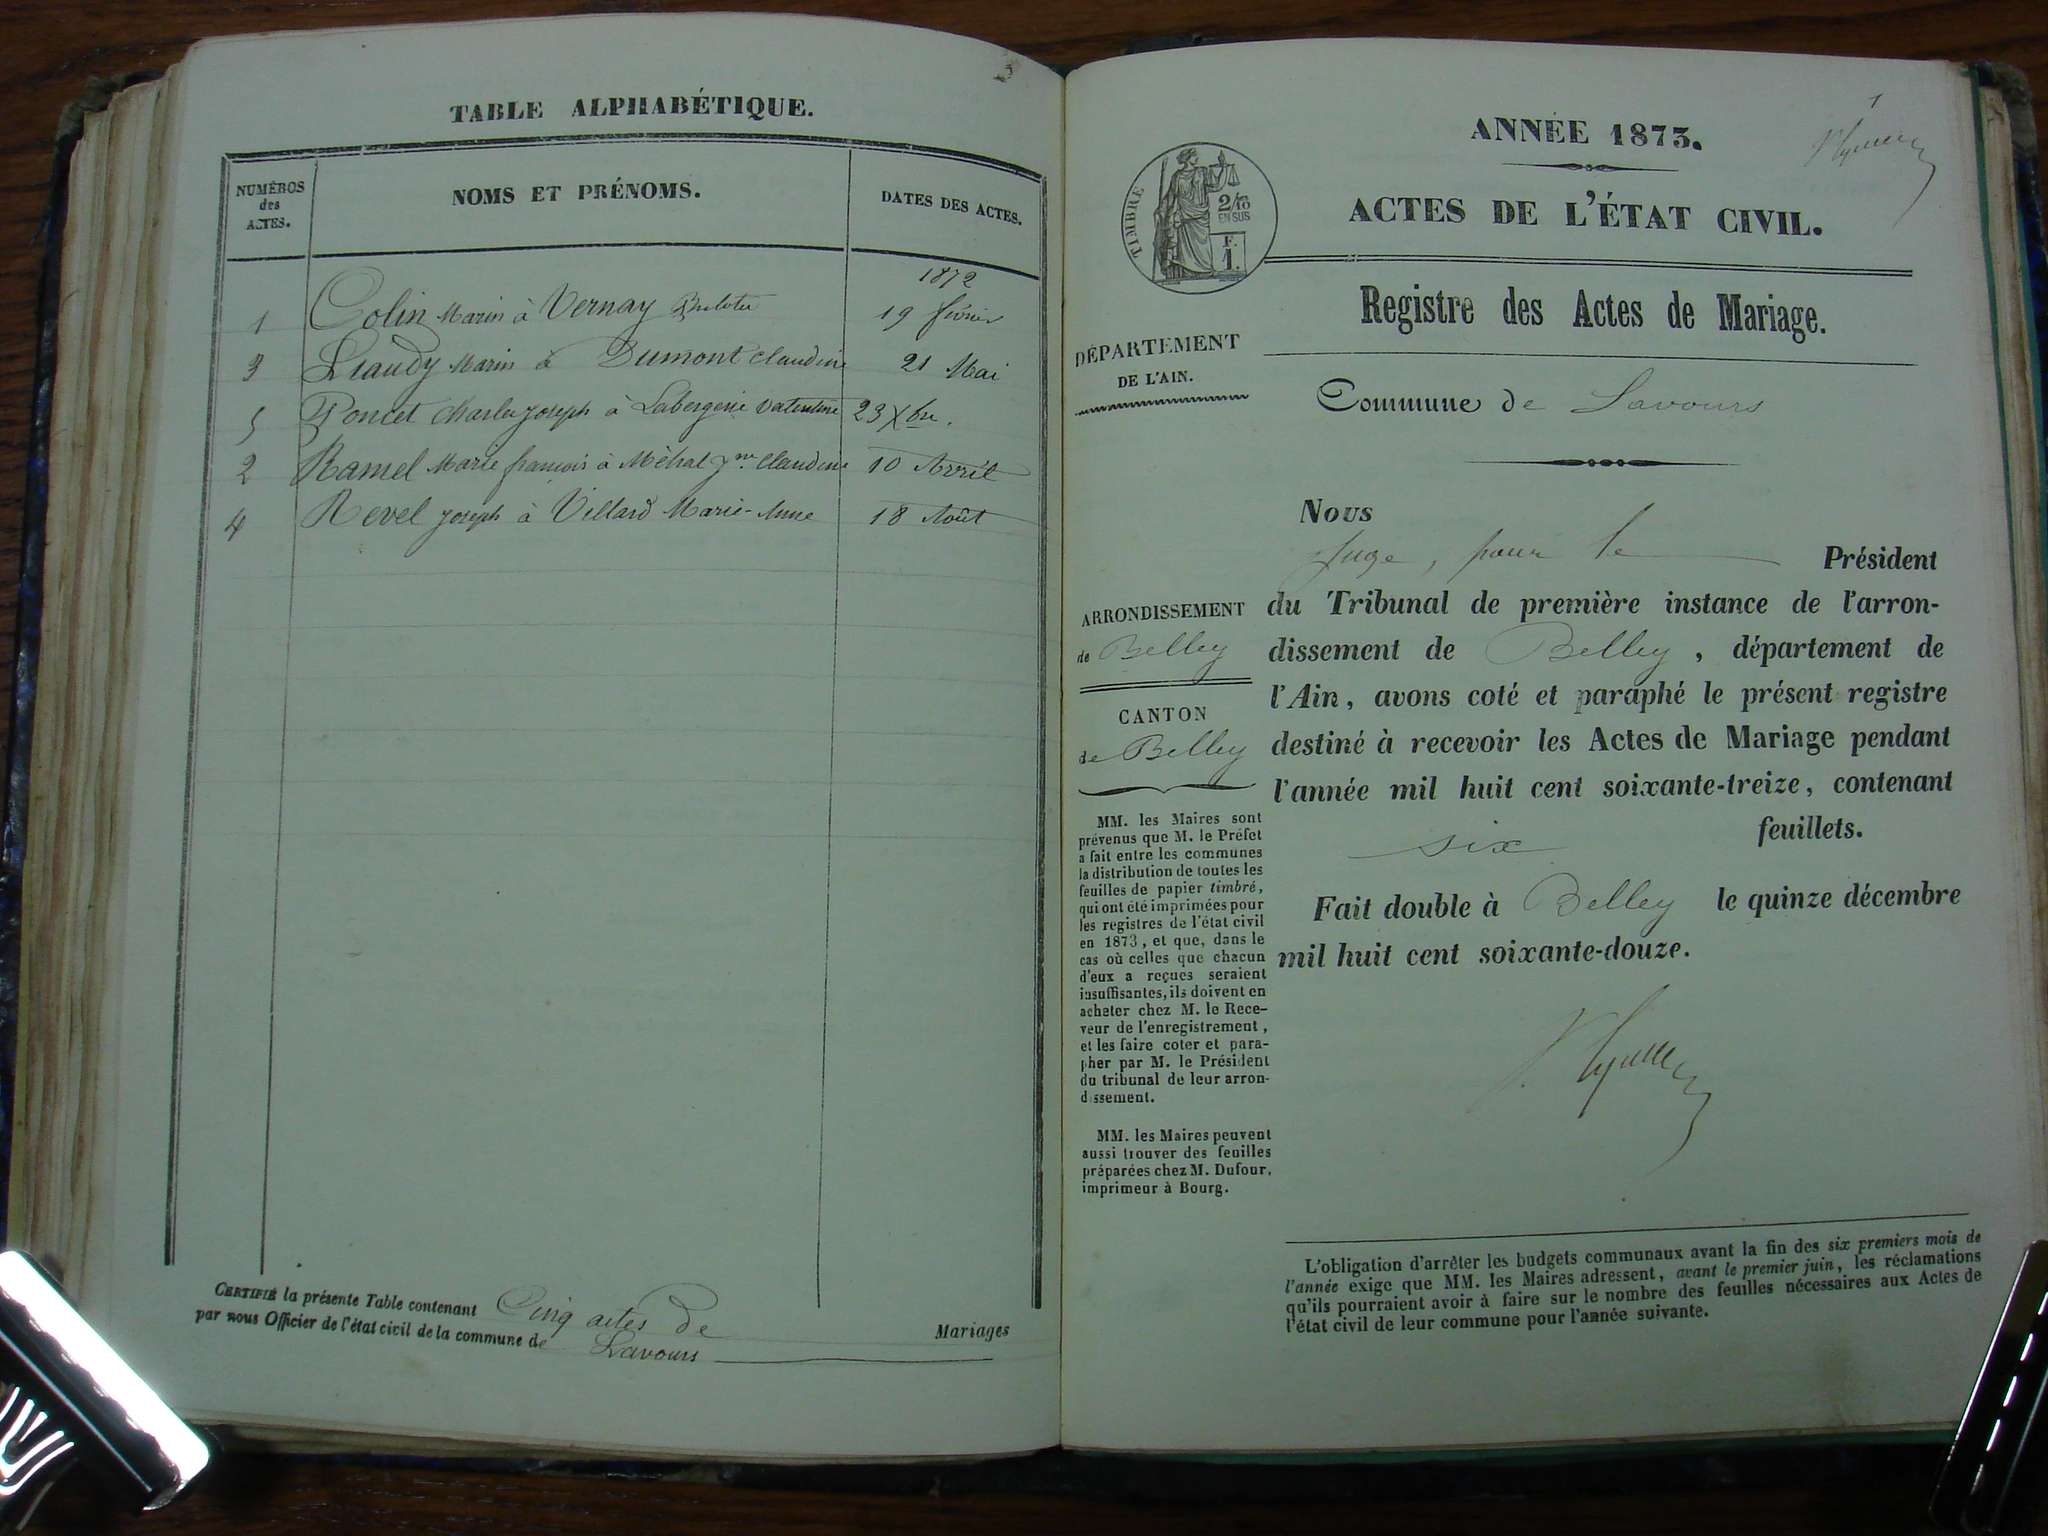 TABLE ALPHABÉTIQUE.
NUMÉROS des ACTES.
NOMS ET PRÉNOMS.
DATES DES ACTES.
1872
1 Colin Marin à Vernay 19 février
3 Liaudy Marin à Dumont Claudine 21 Mai
5 Poncet Charles Joseph à Labergerie Valentine 23 Xbre.
2 Ramel Marie françois à Méhal Jne Claudine 10 Avril
4 Revel Joseph à Villard Marie-Anne 18 Août
CERTIFIÉ la présente Table contenant Cinq actes de Mariages
par nous Officier de l'état civil de la commune de Lavours
1
ANNÉE 1873.
ACTES DE L'ÉTAT CIVIL.
TIMBRE
2/10
EN SUS
F.
1.
Registre des Actes de Mariage.
DÉPARTEMENT
DE L'AIN.
Commune de Lavours
Nous
Juge, pour le Président
du Tribunal de première instance de l'arron-
dissement de Belley, département de
l'Ain, avons coté et paraphé le présent registre
destiné à recevoir les Actes de Mariage pendant
l'année mil huit cent soixante-treize, contenant
six feuillets.
Fait double à Belley le quinze décembre
mil huit cent soixante-douze.
ARRONDISSEMENT
de Belley
CANTON
de Belley
MM. les Maires sont
prévenus que M. le Préfet
a fait entre les communes
la distribution de toutes les
feuilles de papier timbré,
qui ont été imprimées pour
les registres de l'état civil
en 1873, et que, dans le
cas où celles que chacun
d'eux a reçues seraient
insuffisantes, ils doivent en
acheter chez M. le Rece-
veur de l'enregistrement,
et les faire coter et para-
pher par M. le Président
du tribunal de leur arron-
dissement.
MM. les Maires peuvent
aussi trouver des feuilles
préparées chez M. Dufour,
imprimeur à Bourg.
L'obligation d'arrêter les budgets communaux avant la fin des six premiers mois de
l'année exige que MM. les Maires adressent, avant le premier juin, les réclamations
qu'ils pourraient avoir à faire sur le nombre des feuilles nécessaires aux Actes de
l'état civil de leur commune pour l'année suivante.